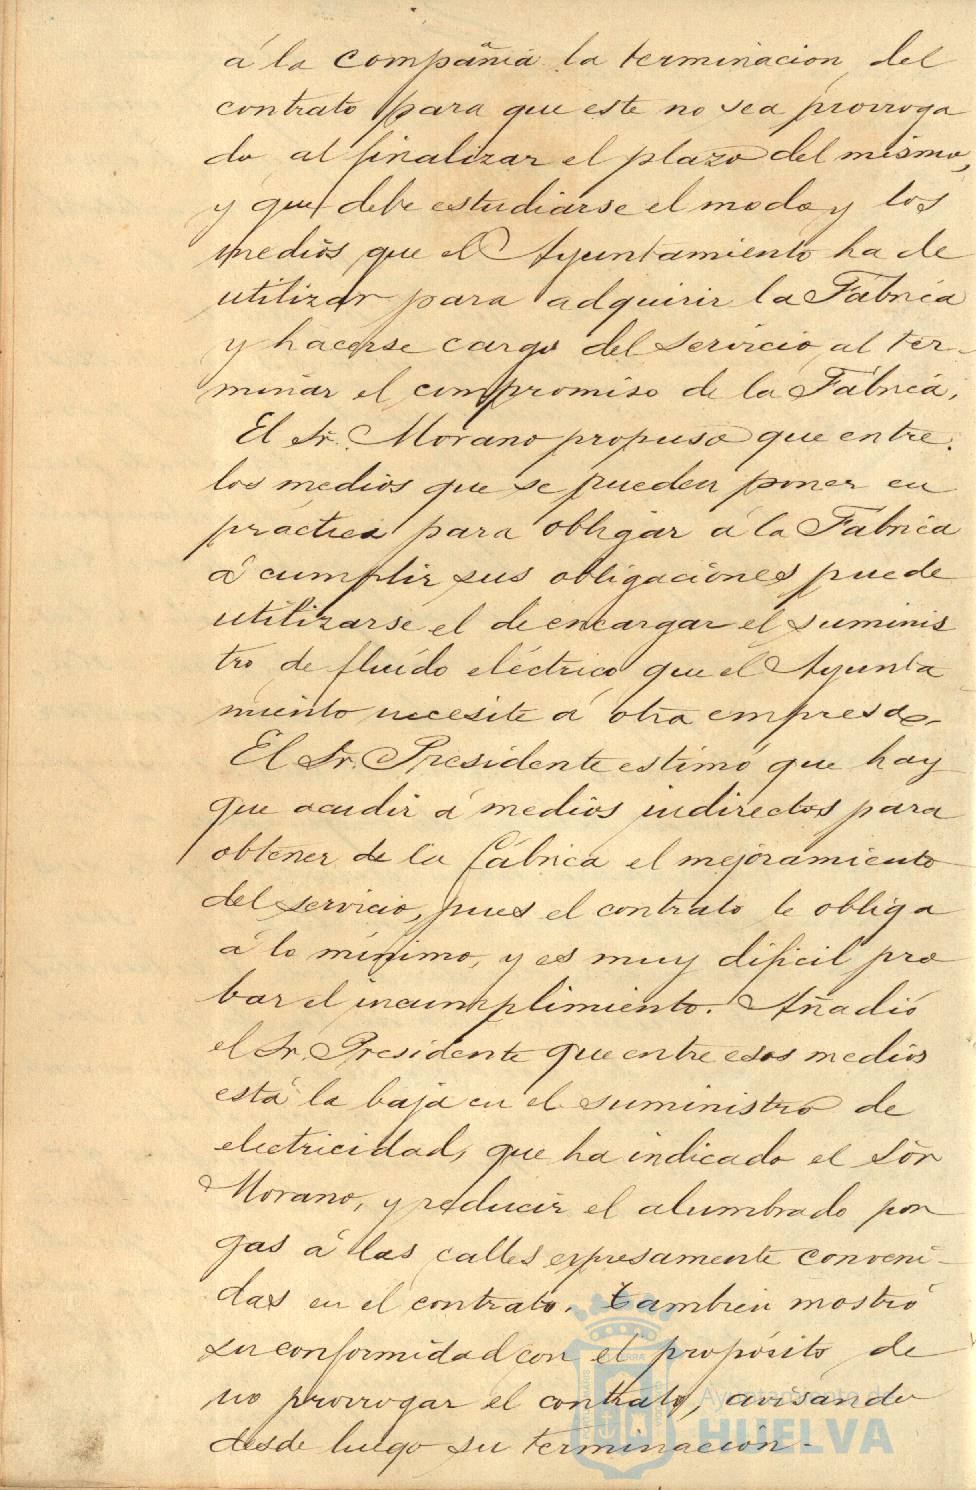 á la compañia la terminacion del
contrato para que este no sea prorroga
do al finalizar el plazo del mismo,
y que debe estudiarse el modo y los
medios que el Ayuntamiento ha de
utilizar para adquirir la Fábrica
y hacerse cargo del servicio al ter-
minar el compromiso de la Fábrica.
El Sr. Morano propuso que entre
los medios que se pueden poner en
práctica para obligar á la Fabrica
á cumplir sus obligaciones puede
utilizarse el de encargar el suminis
tro de fluído eléctrico que el Ayunta
miento necesite á otra empresa.
El Sr. Presidente estimó que hay
que acudir á medios indirectos para
obtener de la fábrica el mejoramiento
del servicio, pues el contrato le obliga
á lo mínimo, y es muy dificil pro
bar el incumplimiento. Añadió
el Sr. Presidente que entre esos medios
está la baja en el suministro de
electricidad, que ha indicado el Sór
Morano, y reducir el alumbrado por
gas á las calles expresamente conveni-
das en el contrato. Tambien mostró
su conformidad con el propósito de
no prorrogar el contrato, avisando
desde luego su terminación.-
Ayuntamiento de
HUELVA